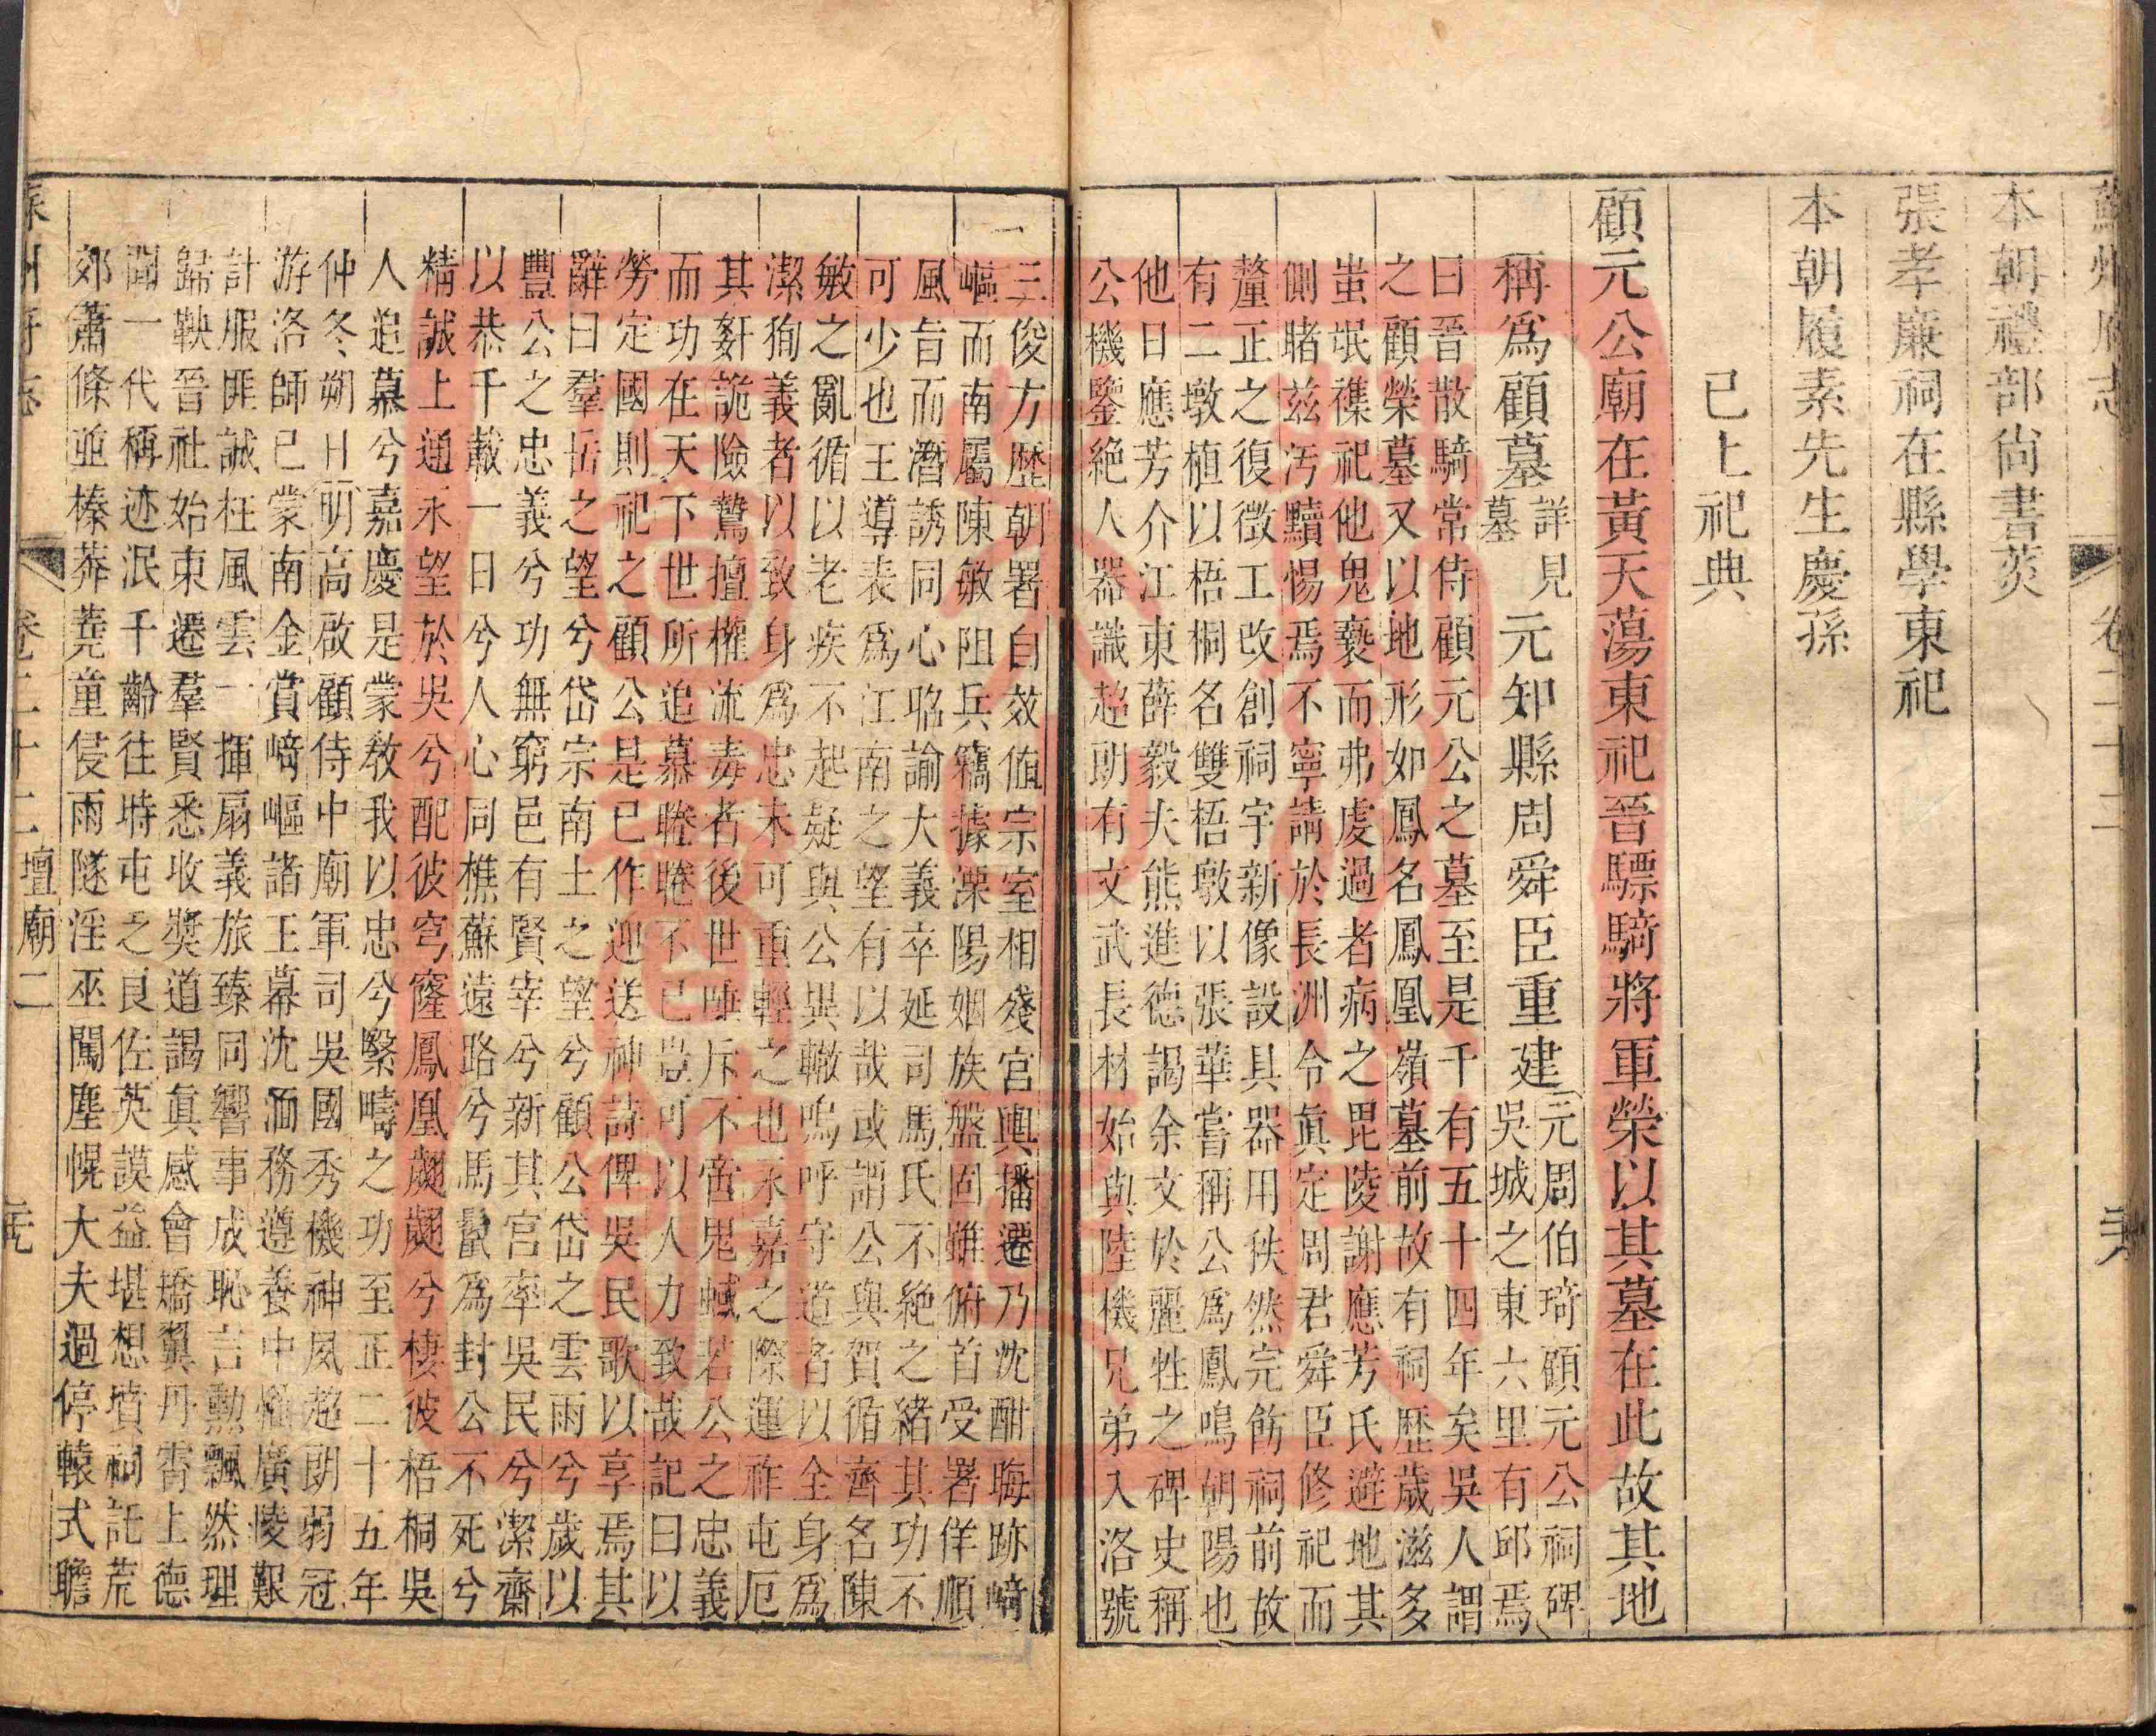 蘇州府志 卷二十二
本朝禮部尚書菼
張孝廉祠在縣學東祀
本朝履素先生慶孫
已上祀典
顧元公廟在黃天蕩東祀晉驃騎將軍榮以其墓在此故其地
稱爲顧墓詳見墓元知縣周舜臣重建元周伯琦顧元公祠碑吳城之東六里有邱焉
曰晉散騎常侍顧元公之墓至是千有五十四年矣吳人謂
之顧榮墓又以地形如鳳名鳳凰嶺墓前故有祠歴歲滋多
蚩氓襍祀他鬼褻而弗虔過者病之毘陵謝應芳氏避地其
側睹兹汚黷惕焉不寧請於長洲令眞定周君舜臣修祀而
釐正之復徵工改創祠宇新像設具器用秩然完飭祠前故
有二墩植以梧桐名雙梧墩以張華嘗稱公爲鳳鳴朝陽也
他日應芳介江東薛毅夫熊進德謁余文於麗牲之碑史稱
公機鑒絶人器識超朗有文武長材始與陸機兄弟入洛號
三俊方歴朝署自效値宗室相殘宮輿播遷乃沈酣晦跡﨑
嶇而南屬陳敏阻兵竊據溧陽姻族盤固雖俯首受署佯順
風旨而潛誘同心昭諭大義卒延司馬氏不絶之緒其功不
可少也王導表爲江南之望有以哉或謂公與賀循齊名陳
敏之亂循以老疾不起疑與公異轍嗚呼守道者以全身爲
潔狥義者以致身爲忠未可重輕之也永嘉之際運祚屯厄
其姧詭險鷙擅權流毒者後世唾斥不啻鬼蜮若公之忠義
而功在天下世所追慕睠睠不已豈可以人力致哉記曰以
勞定國則祀之顧公是已作迎送神詩俾吳民歌以享焉其
辭曰羣岳之望兮岱宗南土之望兮顧公岱之雲雨兮歲以
豐公之忠義兮功無窮邑有賢宰兮新其宫率吳民兮潔齋
以恭千載一日兮人心同樵蘇遠路兮馬鬛爲封公不死兮
精誠上通永望於吳兮配彼穹窿鳳凰翽翽兮棲彼梧桐吳
人追慕兮嘉慶是蒙敎我以忠兮緊疇之功至正二十五年
仲冬朔日明高啟顧侍中廟軍司吳國秀機神夙超朗弱冠
游洛師已蒙南金賞﨑嶇諸王幕沈湎務遵養中罹廣陵艱
計服匪誠枉風雲一揮扇義旅臻同響事成恥言勳飄然理
歸鞅晉社始東遷羣賢悉收奬道謁眞感會矯翼丹霄上德
聞一代稱迹泯千齡往時屯乏良佐英謨益堪想墳祠託荒
郊蕭條並榛莽蕘童侵雨隧淫巫闖塵幌大夫過停轅式瞻
蘇州府志 卷二十二 壇廟二